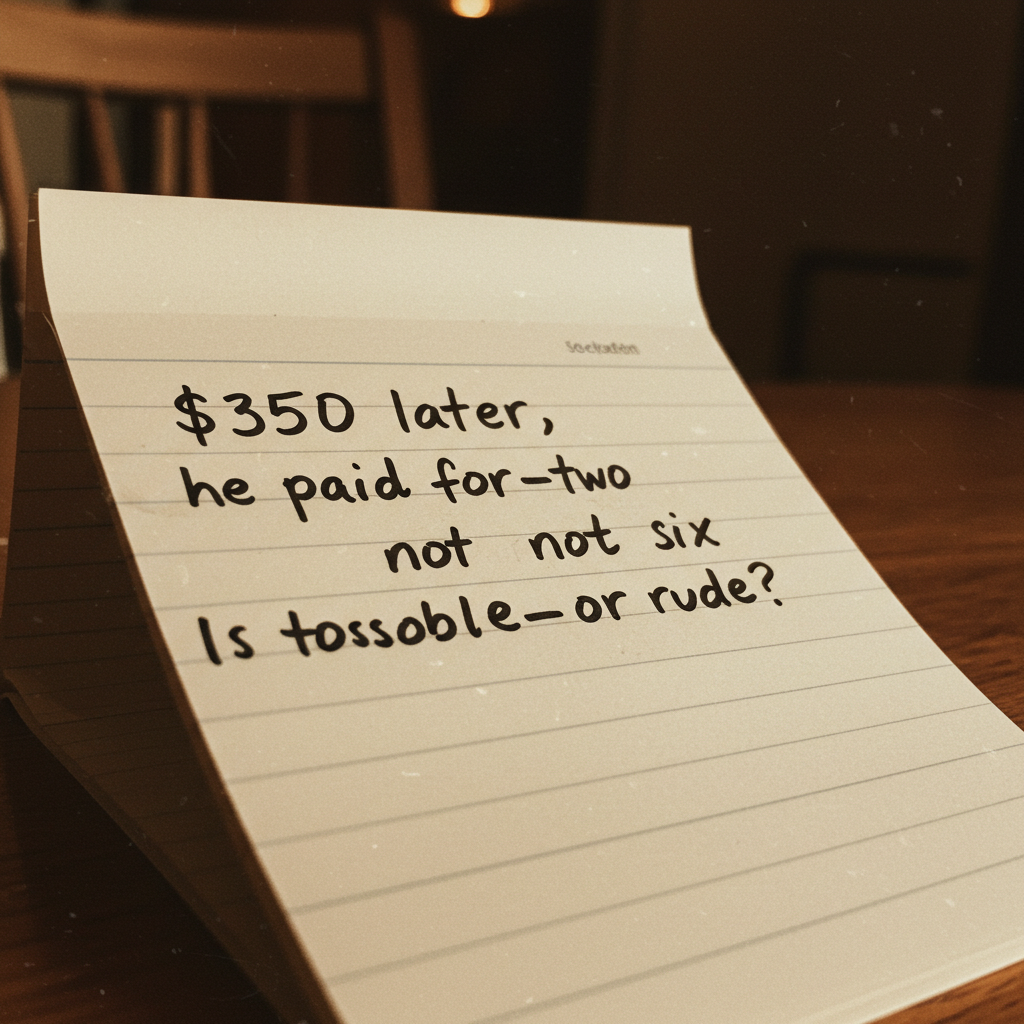 $350 later,
he paid for–two
not not six
Is tossoble–or rude?